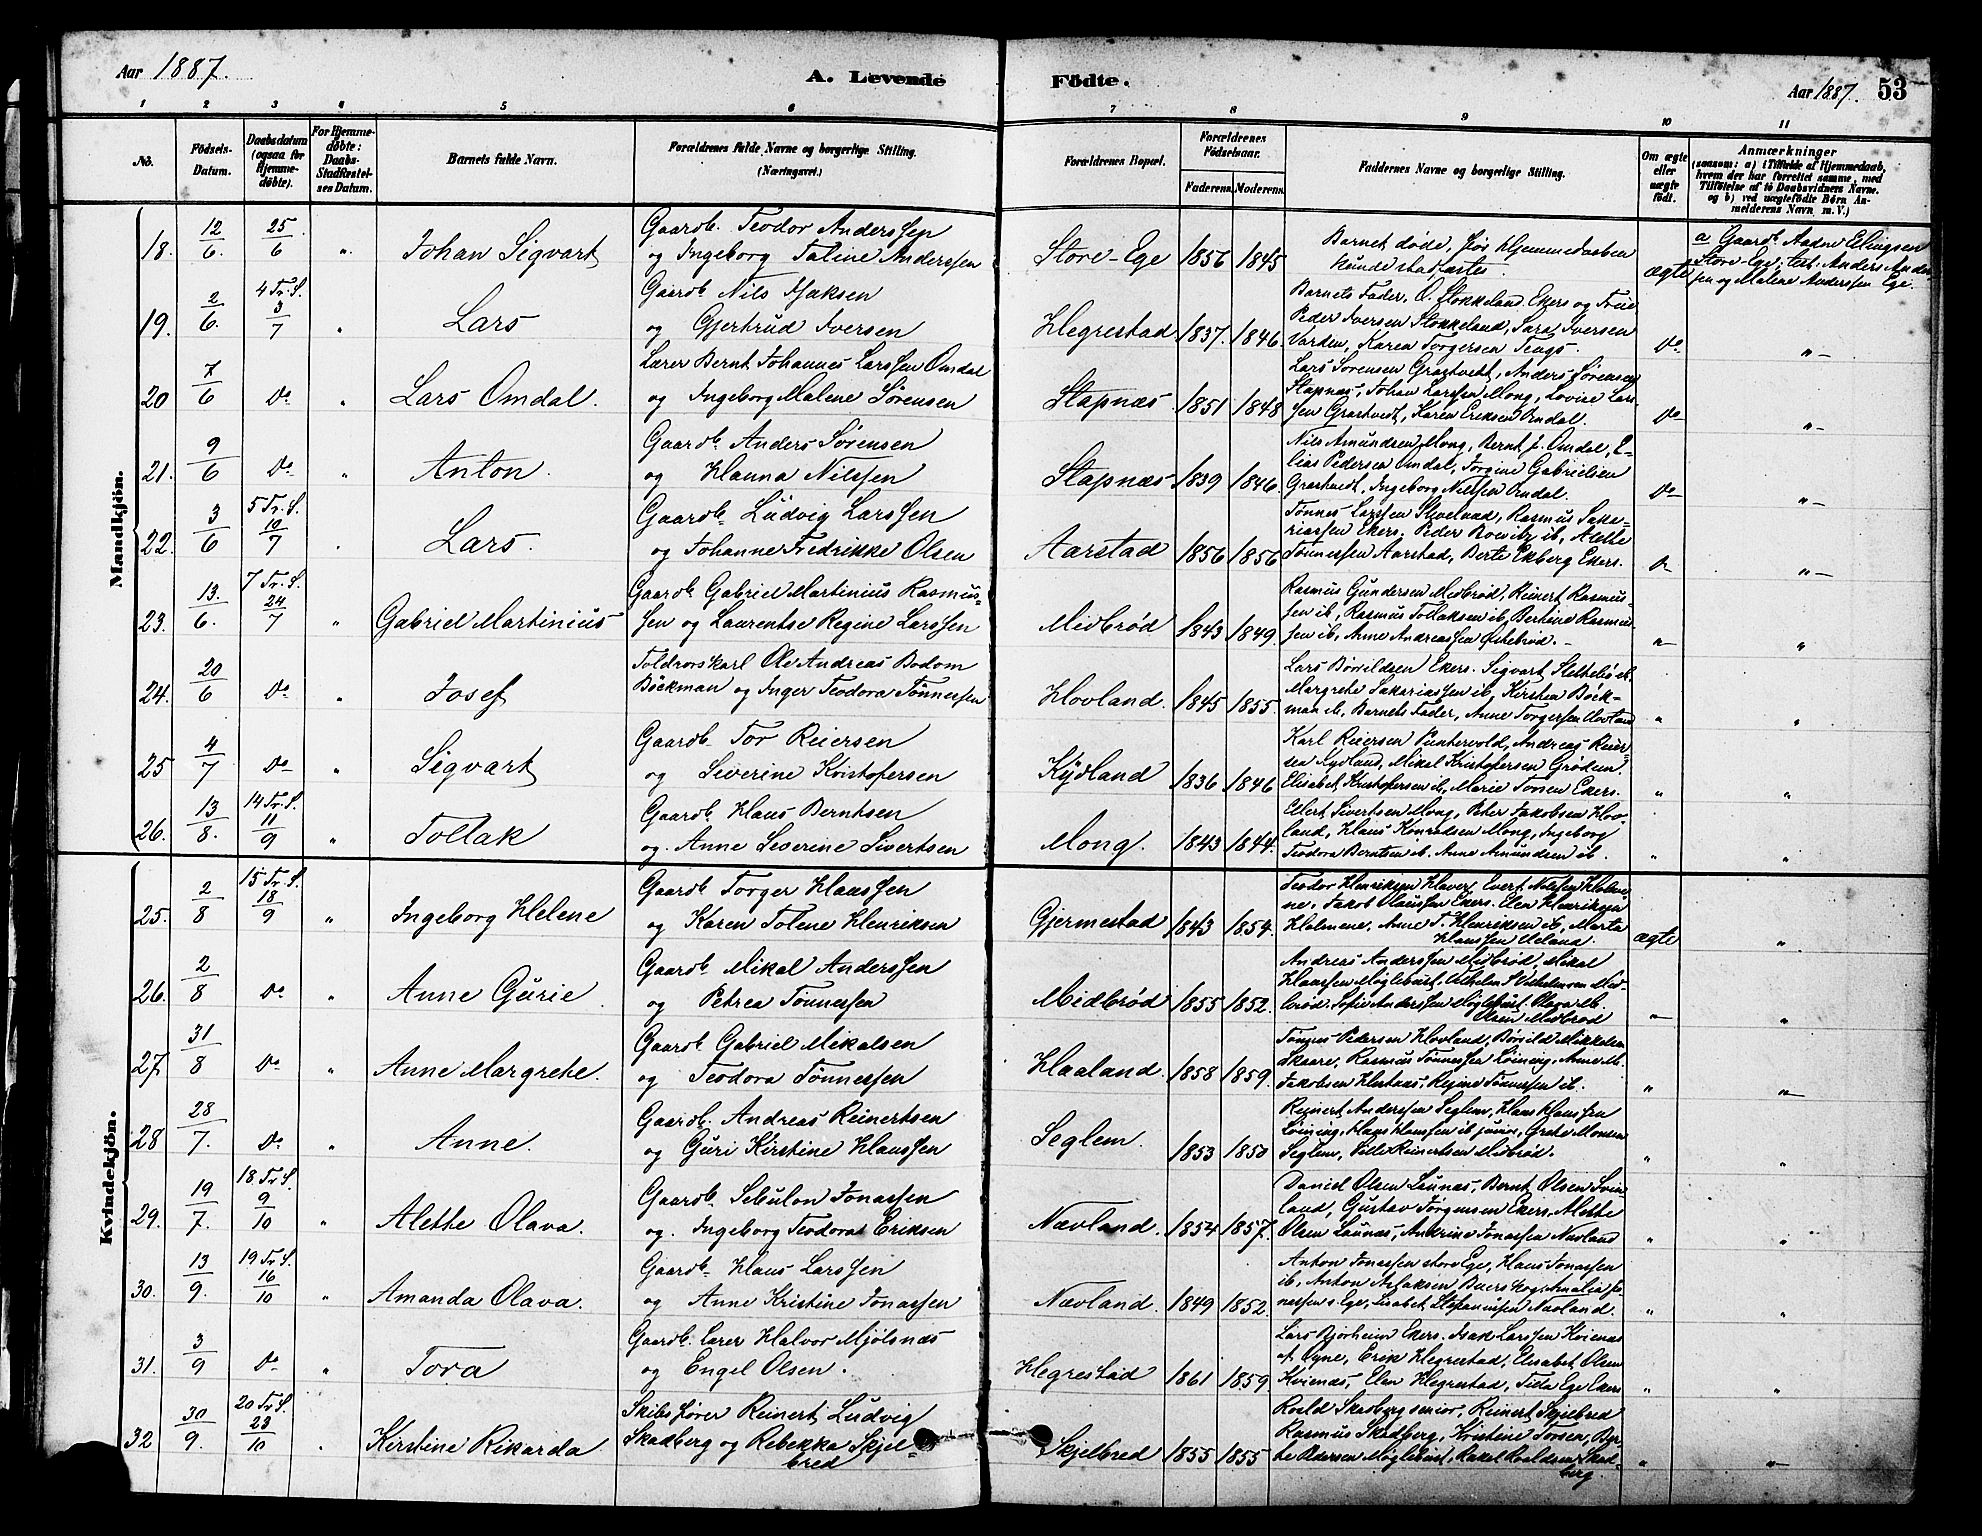 Aar 1887.
A. Levende Födte.
Aar 1887. 53
1 2 3 4 5 6 7 8 9 10 11
No.
Födsels-Datum.
Daabsdatum (ogsaa for Hjemme-döbte).
For Hjemme-döbte: Daabs-Stadfæstel-ses Datum.
Barnets fulde Navn.
Forældrenes fulde Navne og borgerlige Stilling. (Næringsvei.)
Forældrenes Bopæl.
Forældrenes Födselsaar. Faderens. Moderens.
Faddernes Navne og borgerlige Stilling.
Om ægte eller uægte födt.
Anmærkninger
(saasom: a) i Tilfælde af Hjemmedaab, hvem der har forrettet samme, med Tilföielse af to Daabsvidners Navne. og b) ved uægtefödte Börn An-melderens Navn m. V.)
Mandkjön.
18. 12/6. 25/6 „ Johan Sigvart
Gaardb. Teodor Anderssen
og Ingeborg Taline Anderssen
Store-Ege 1856 1845
Barnet døde, før Hjemmedaaben
kunde stadfæstes.
ægte
a Gaardb. Aadne Ellingsen
Store-Ege; test: Anders Ander
sen og Malene Anderssen Ege.
19. 2/6. 4 Tr. S. 3/7 „ Lars
Gaardb. Nils Isaksen
og Gjertrud Iversen
Hegrestad 1837. 1846.
Barnets Fader, O. Stokkeland Ekers og Frue
Peder Iversen Stokkeland, Sara Iversen
Varden, Karen Torgersen Tengs.
Do „
20 7/6 Do „ Lars Omdal.
Lærer Bernt Johannes Larssen Omdal
og Ingeborg Malene Sørensen
Stapnæs 1851 1848
Lars Sørensen Grastvedt, Anders Sørensen
Stapnæs, Johan Larssen Mong, Lovise Lars-
sen Grastvedt, Karen Eriksen Omdal.
Do „
21. 9/6 Do „ Anton.
Gaardb. Anders Sørensen
og Hanna Nilssen
Stapnæs 1839 1846
Nils Amundsen Mong, Bernt J. Omdal, E-
lias Pedersen Omdal, Jorgine Gabrielsen
Grastvedt, Ingeborg Nilssen Omdal.
Do „
22. 3/6 5 Tr. S. 10/7 „ Lars.
Gaardb. Ludvig Larssen
og Johanne Fredrikke Olsen
Aarstad 1856 1856
Tønnes Larssen Rasmus Saka-
riassen Ekers. Peder ib, Alethe
Tønnessen Aarstad, Berte Ekberg Ekers.
„
23. 13./6. 7 Tr. S. 24/7 „ Gabriel Martinius
Gaardb. Gabriel Martinius Rasmus-
sen og Laurentse Regine Larssen
Midbrød 1843 1849
Rasmus Gundersen Midbrød, Reinert Rasmus-
sen ib, Rasmus Tollaksen ib, Bertine Rasmus-
sen ib, Anne Andreassen Østebrød.
„ „
24. 20/6 Do „ Josef
Toldrorskarl Ole Andreas Bodom
Böckman og Inger Teodora Tönnessen
Hovland. 1845 1855.
Lars Børildsen Ekers. Sigvart Slettebø ib.
Margrethe Sakariassen ib, Kirsten Böck-
man ib, Barnets Fader, Anne Torgersen Hovland
„ „
25 4/7 Do „ Sigvart
Gaardb. Tor Reiersen
og Severine Kristofersen
Kydland 1836 1846
Karl Reiersen Puntervold, Andreas Reier-
sen Kydland, Mikal Kristofersen Grødem.
Elisabet Kristofersen ib, Marie Tonen Ekers.
„ „
26. 13/8. 14 Tr. S. 11/9 „ Tollak
Gaardb. Klaus Berntsen
og Anne Severine Sivertsen
Mong. 1843 1844.
Ellert Sivertsen Mong, Peter Jakobsen Hov-
land, Klaus Konradsen Mong, Ingeborg
Teodora Berntsen ib. Anne Amundsen ib.
„ „
Kvindekjön.
25. 2/8 15 Tr. S. 18/9 „ Ingeborg Helene
Gaardb. Torger Klaussen
og Karen Tolene Henriksen
Gjermestad 1843 1854.
Teodor Henriksen Evert Nilssen Holme-
ne, Jakob Ekers. Elen Henriksen
Holmene, Anne T. Henriksen ib, Marta
Klaussen
ægte „
26. 2/8 Do „ Anne Gurie.
Gaardb. Mikal Anderssen
og Petrea Tønnessen
Midbrød 1855 1852.
Andreas Anderssen Midbrød, Mikal
Klaussen Møglebust, Vilhelm Vilhelmsen Mid-
brød. Sofie Anderssen Møglebust. Olava M.
Olsen Midbrød
„ „
27. 31/8 Do „ Anne Margrethe.
Gaardb. Gabriel Mikalsen
og Teodora Tønnessen
Haaland. 1858 1859.
Tønnes Pedersen Hovland, Børild Mikkelsen
Skaare, Rasmus Tønnessen Løining, Anne M.
Jakobsen Hestnæs, Regine Tønnessen ib.
„ „
28 28/7. Do „ Anne.
Gaardb. Andreas Reinertsen
og Guri Kirstine Klaussen
Seglem. 1853 1850
Reinert Anderssen Seglem, Klaus Klaussen
Løining, Hans Klaussen ib junior, Grete Monsen
Seglem, Sille Reinertsen Midbrød.
„ „
29. 19/7. 18 Tr S. 9/10 „ Alethe Olava.
Gaardb. Sebulon Jonassen
og Ingeborg Teodora Eriksen
Nævland. 1854 1857.
Daniel Olsen Launæs, Bernt Olsen Svin-
land, Gustav Jørgensen Ekers, Alethe
Olsen Launæs, Andrine Jonassen Nævland
„ „
30. 13/9. 19 Tr. S. 16/10 „ Amanda Olava.
Gaardb. Klaus Larssen
og Anne Kristine Jonassen
Nævland. 1849 1852.
Anton Jonassen store Ege, Klaus Jonassen
ib, Anton Aslaksen Amalia Jo-
nassen s. Ege, Lisabet Stefansen Nævland.
„ „
31. 3/9 Do „ Tora
Gaardb. Lærer Halvor Mjølsnæs
og Engel Olsen.
Hegrestad 1861 1859.
Lars Bjorheim Ekers. Isak Larssen Kvienæs
af Øyne, Erik Hegrestad, Elisabet Olsen
Kvienæs, Elen Hegrestad, Tida Ege Ekers
„ „
32 30/9. 20 Tr S. 23/10 „ Kirstine Rikarda
Skibsfører Reinert Ludvig
Skadberg og Rebekka Skjel-
bred
Skjelbred 1855 1855
Roald Skadberg senior, Reinert Skjelbred
Rasmus Skadberg, Kristine Torsen, Ber-
the Pedersen Møglebust, Rakel Roaldsen Skad-
berg
„ „